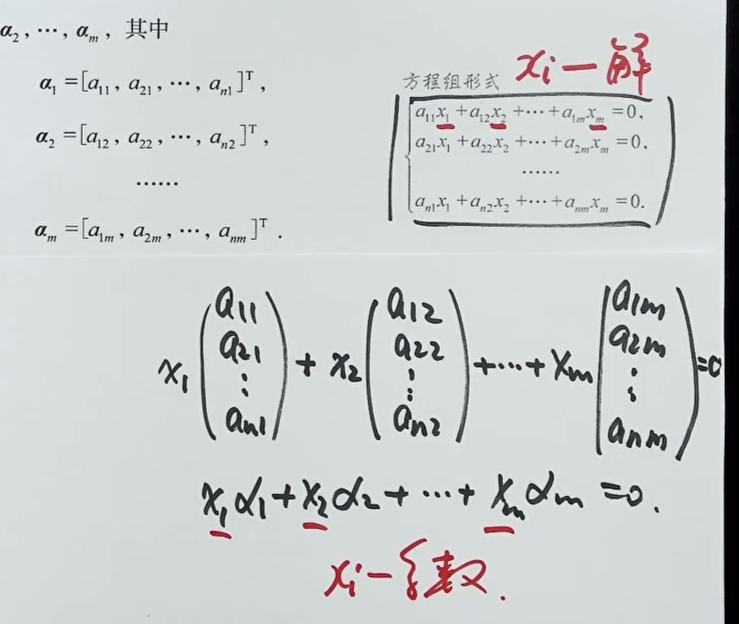 α₂, ⋯, αₘ, 其中
α₁ =[a₁₁, a₂₁, ⋯, aₙ₁]ᵀ,
α₂ =[a₁₂, a₂₂, ⋯, aₙ₂]ᵀ,
……
αₘ =[a₁ₘ, a₂ₘ, ⋯, aₙₘ]ᵀ.
方程组形式 xᵢ—解
a₁₁x₁+a₁₂x₂+⋯+a₁ₘxₘ=0,
a₂₁x₁+a₂₂x₂+⋯+a₂ₘxₘ=0,
……
aₙ₁x₁+aₙ₂x₂+⋯+aₙₘxₘ=0.
x₁(a₁₁ a₂₁ ⋮ aₙ₁)+x₂(a₁₂ a₂₂ ⋮ aₙ₂)+⋯+xₘ(a₁ₘ a₂ₘ ⋮ aₙₘ)=0
x₁α₁+x₂α₂+⋯+xₘαₘ=0.
xᵢ—系数.